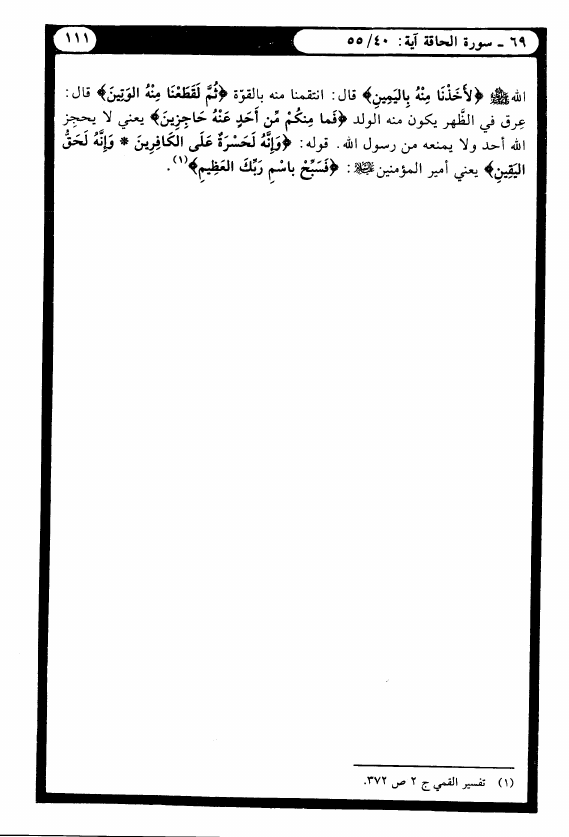 ٦٩ ـ سورة الحاقة آية: ٤٠/ ٥٥
١١١
الله ﷺ ﴿لأَخَذْنَا مِنْهُ بِاليَمِينِ﴾ قال: انتقمنا منه بالقوّة ﴿ثُمَّ لَقَطَعْنَا مِنْهُ الوَتِينَ﴾ قال:
عِرق في الظَّهر يكون منه الولد ﴿فَما مِنكُمْ مِّن أَحَدٍ عَنْهُ حَاجِزِينَ﴾ يعني لا يحجِز
الله أحد ولا يمنعه من رسول الله. قوله: ﴿وَإِنَّهُ لَحَسْرَةٌ عَلَى الكَافِرِينَ * وَإِنَّهُ لَحَقُّ
اليَقِينِ﴾ يعني أمير المؤمنين عليه السلام: ﴿فَسَبِّحْ باسْمِ رَبِّكَ العَظِيمِ﴾(١).
(١) تفسير القمي ج ٢ ص ٣٧٢.